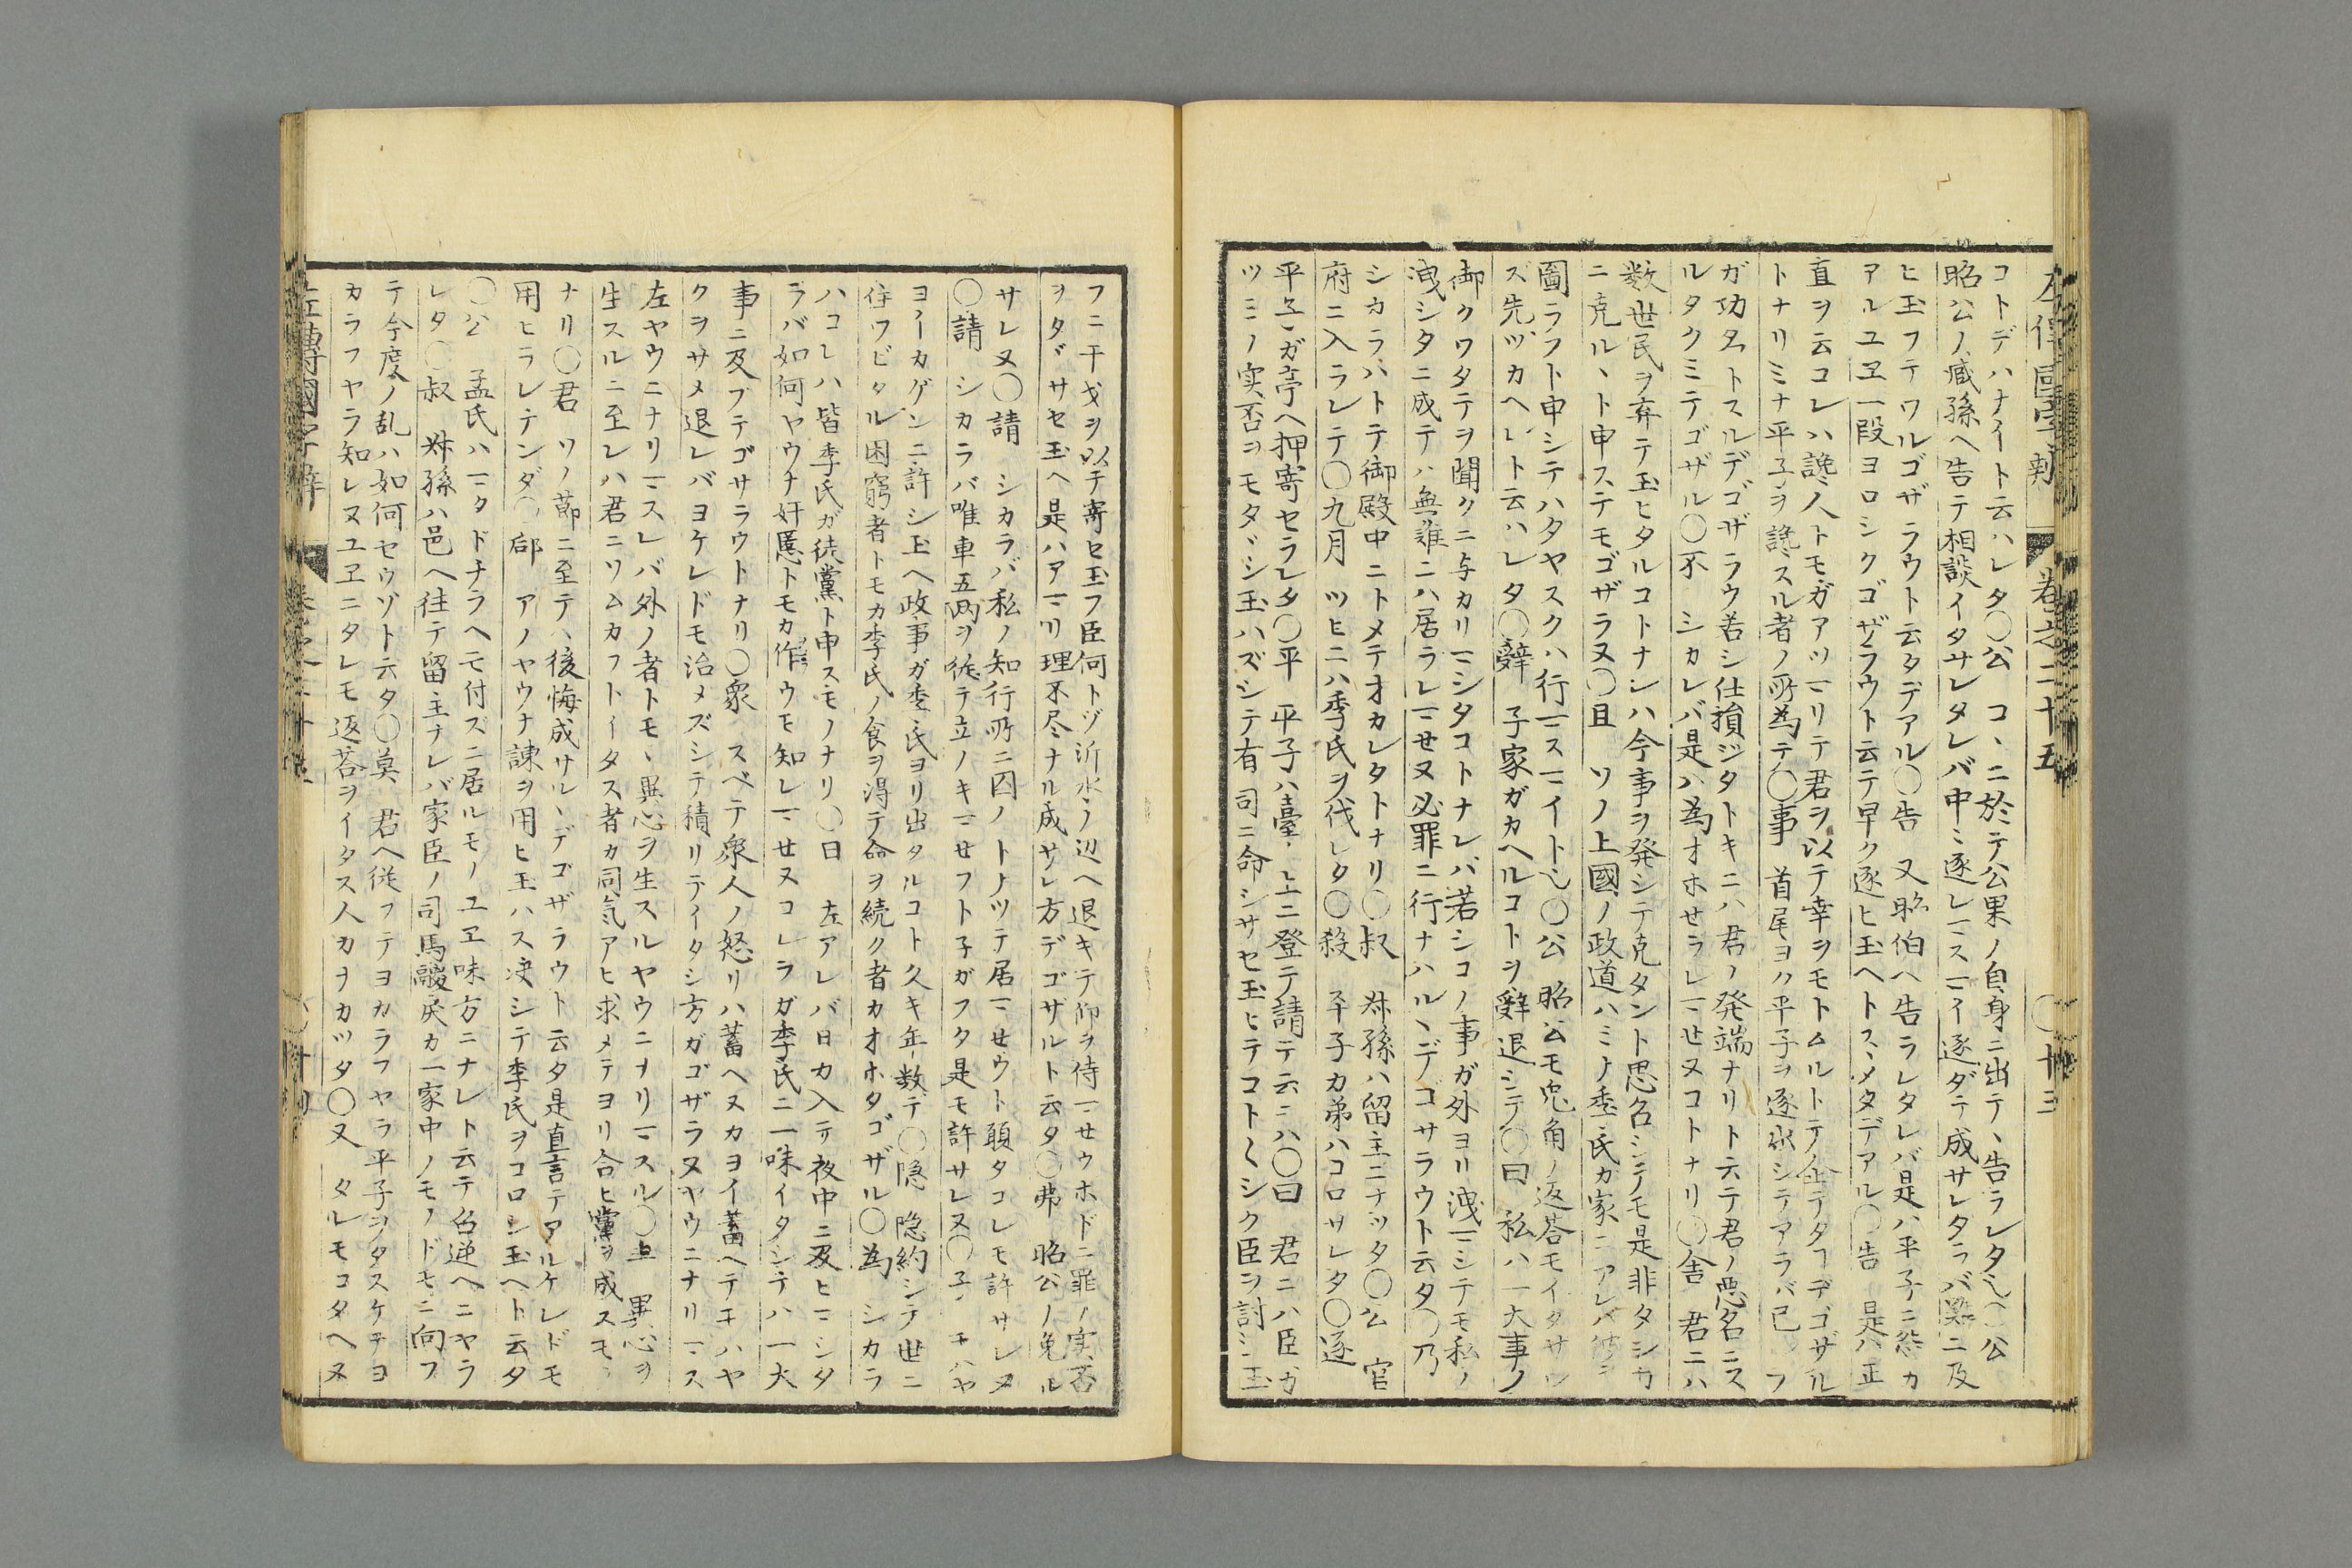 左傳國字辯 巻之二十五 〇廿三
コトデハナイト云ハレタ〇公 コヽニ於テ公果ノ自身ニ出テヽ告ラレタ〇公
昭公ノ臧孫ヘ告テ相談イタサレタレバ中〻逐レマスマイ逐ダテ成サレタラバ難ニ及
ヒ玉フテワルゴザラウト云タデアル〇告 又昭伯ヘ告ラレタレバ是ハ平子ニ怨カ
アルユヱ一段ヨロシクゴザラウト云テ早ク逐ヒ玉ヘトスヽメタデアル〇告 是ハ正
直ヲ云コレハ讒人トモガアツマリテ君ヲ以テ幸ヲモトムルトテノ企テタコデゴザル
トナリミナ平子ヲ讒スル者ノ所為テ〇事 首尾ヨク平子ヲ逐出シテアラバ已 フ
ガ功名トスルデゴザラウ若シ仕損ジタトキニハ君ノ発端ナリト云テ君ノ悪名ニス
ルタクミテゴザル〇不 シカレバ是ハ為オホセラレマセヌコトナリ〇舎 君ニハ
数世民ヲ弃テ玉ヒタルコトナレハ今事ヲ発シテ克タント思召シテモ是非タシカ
ニ克ルヽト申ステモゴザラヌ〇且 ソノ上國ノ政道ハミナ季氏カ家ニアレバ彼ヲ
圖ラフト申シテハタヤスクハ行マスマイト〇公 昭公モ兎角ノ返荅モイタサ
ズ先ヅカヘレト云ハレタ〇辭 子家ガカヘルコトヲ辭退シテ〇曰 私ハ一大事ノ
御クワタテヲ聞クニ与カリマシタコトナレバ若シコノ事ガ外ヨリ洩マシテモ私ノ
洩シタニ成テハ無難ニハ居ラレマセヌ必罪ニ行ナハルヽデコサラウト云タ〇乃
シカラハトテ御殿中ニトメテオカレタトナリ〇叔 叔孫ハ留主ニナツタ〇公 官
府ニ入ラレテ〇九月 ツヒニハ季氏ヲ伐レタ〇殺 平子カ弟ハコロサレタ〇遂
平子ガ亭ヘ押寄セラレタ〇平 平子ハ臺ノ上ニ登テ請テ云ニハ〇曰 君ニハ臣ガ
ツミノ実否ヲモタヾシ玉ハズシテ有司ニ命シサセ玉ヒテコト〱シク臣ヲ討ミ玉
フニ干戈ヲ以テ寄セ玉フ臣何トゾ沂水ノ辺ヘ退キテ仰ヲ待マセウホドニ罪ノ実否
ヲタヾサセ玉ヘ是ハアマリ理不尽ナル成サレ方デゴザルト云タ〇弗 昭公ノ免ル
サレヌ〇請 シカラバ私ノ知行所ニ囚ノトナツテ居マセウト願タコレモ許サレヌ
〇請 シカラバ唯車五両ヲ従テ立ノキマセフト子ガフタ是モ許サレヌ〇子 モハヤ
ヨイカゲンニ許シ玉ヘ政事ガ季氏ヨリ出タルコト久キ年数デ〇隠 隠約シテ世ニ
住ワビタル困窮者トモカ李氏ノ食ヲ得テ命ヲ続ク者カオホタゴザル〇為 シカラ
ハコレハ皆李氏ガ徒黨ト申スモノナリ〇日 左アレバ日カ入テ夜中ニ及ヒマシタ
ラバ如何ヤウナ奸慝トモカ作ウモ知レマセヌコレラガ李氏ニ一味イタシテハ一大
事ニ及ブテゴサラウトナリ〇衆 スベテ衆人ノ怒リハ蓄ヘヌカヨイ蓄ヘテモハヤ
クヲサメ退レバヨケレドモ治メズシテ積リテイタシ方ガゴザラヌヤウニナリマス
左ヤウニナリマスレバ外ノ者トモヽ異心ヲ生スルヤウニナリマスル〇生 異心ヲ
生スルニ至レハ君ニソムカフトイタス者カ同気アヒ求メテヨリ合ヒ黨ヲ成スモノ
ナリ〇君 ソノ節ニ至テハ後悔成サルヽデゴザラウト云タ是直言テアルケレドモ
用ヒラレテンダ〇郈 アノヤウナ諫ヲ用ヒ玉ハス决シテ李氏ヲコロシ玉ヘト云タ
〇公 孟氏ハマタドチラヘモ付ズニ居ルモノユヱ味方ニナレト云テ召逆ヘニヤラ
レタ〇叔 叔孫ハ邑ヘ往テ留主ナレバ家臣ノ司馬鬷戾カ一家中ノモノドモニ向フ
テ今度ノ乱ハ如何セウゾト云タ〇莫 君ヘ従フテヨカラフヤラ平子ヲタスケテヨ
カラフヤラ知レヌユヱニタレモ返荅ヲイタス人カナカツタ〇又 タレモコタヘヌ
左傳國字辯